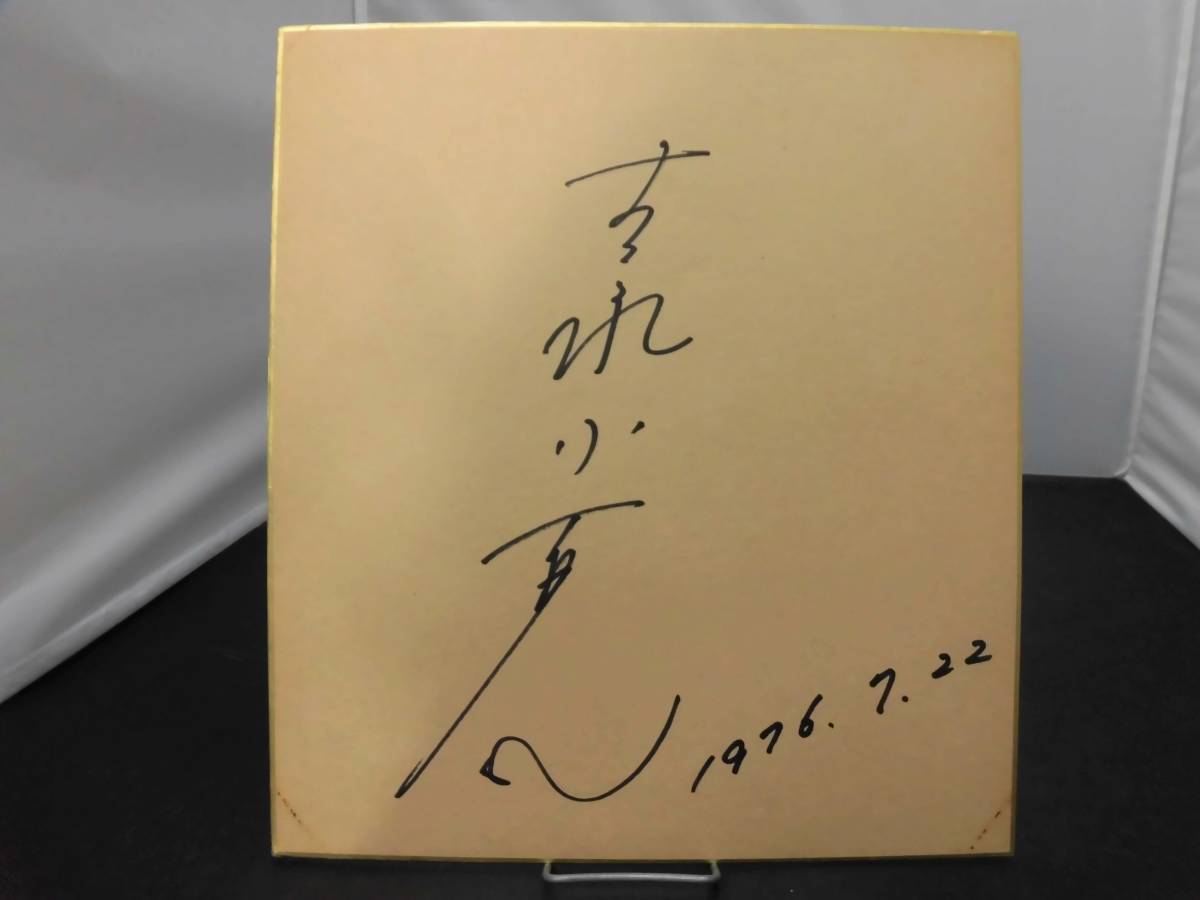 吉永小百合
1976.7.22